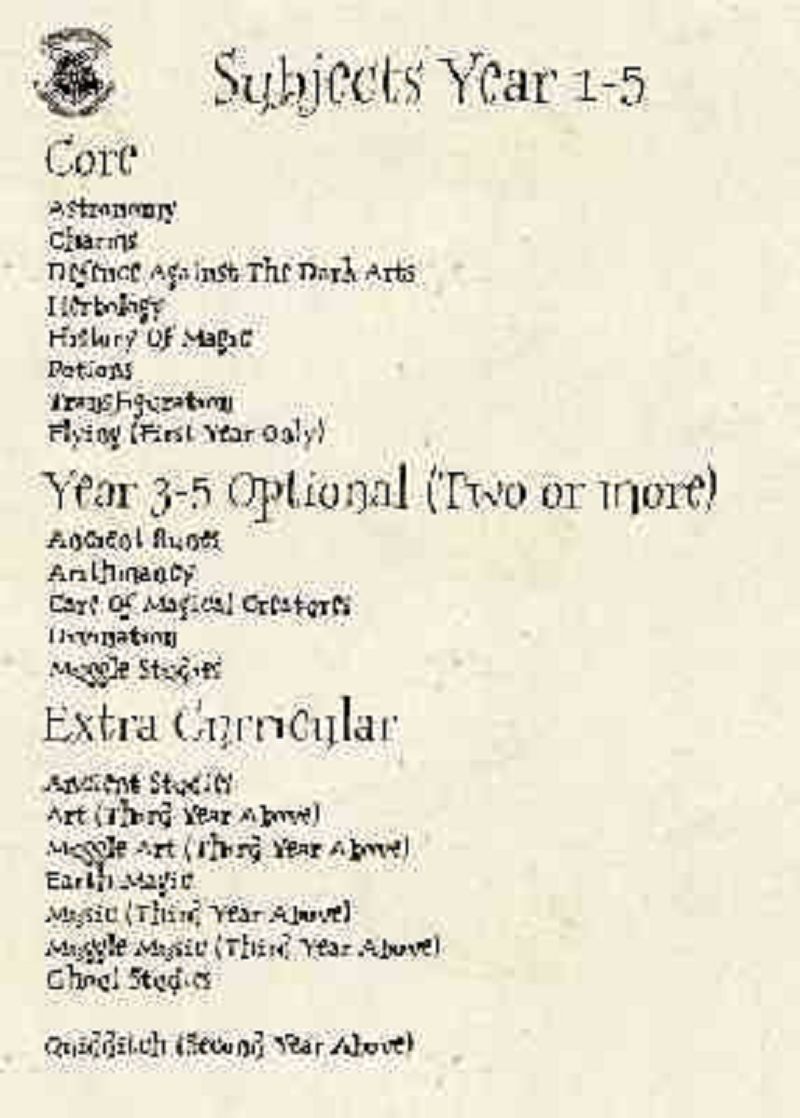 Subjects Year 1-5
Core
Astronomy
Charms
Defence Against The Dark Arts
Herbology
History Of Magic
Potions
Transfiguration
Flying (First Year Only)
Year 3-5 Optional (Two or more)
Ancient Runes
Arithmancy
Care Of Magical Creatures
Divination
Muggle Studies
Extra Curricular
Ancient Studies
Art (Third Year Above)
Muggle Art (Third Year Above)
Earth Magic
Music (Third Year Above)
Muggle Music (Third Year Above)
Ghoul Studies
Quidditch (Second Year Above)